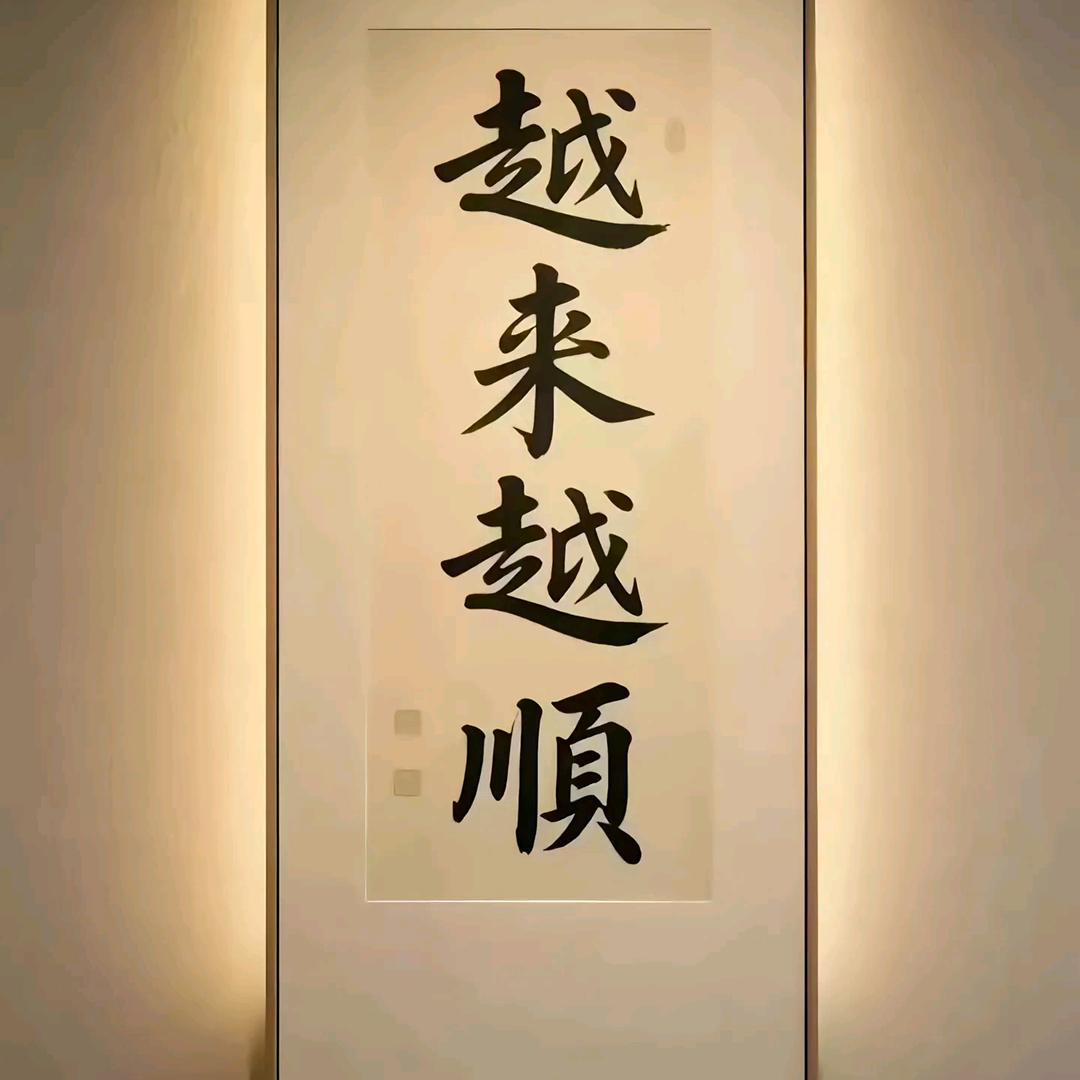 越来越順